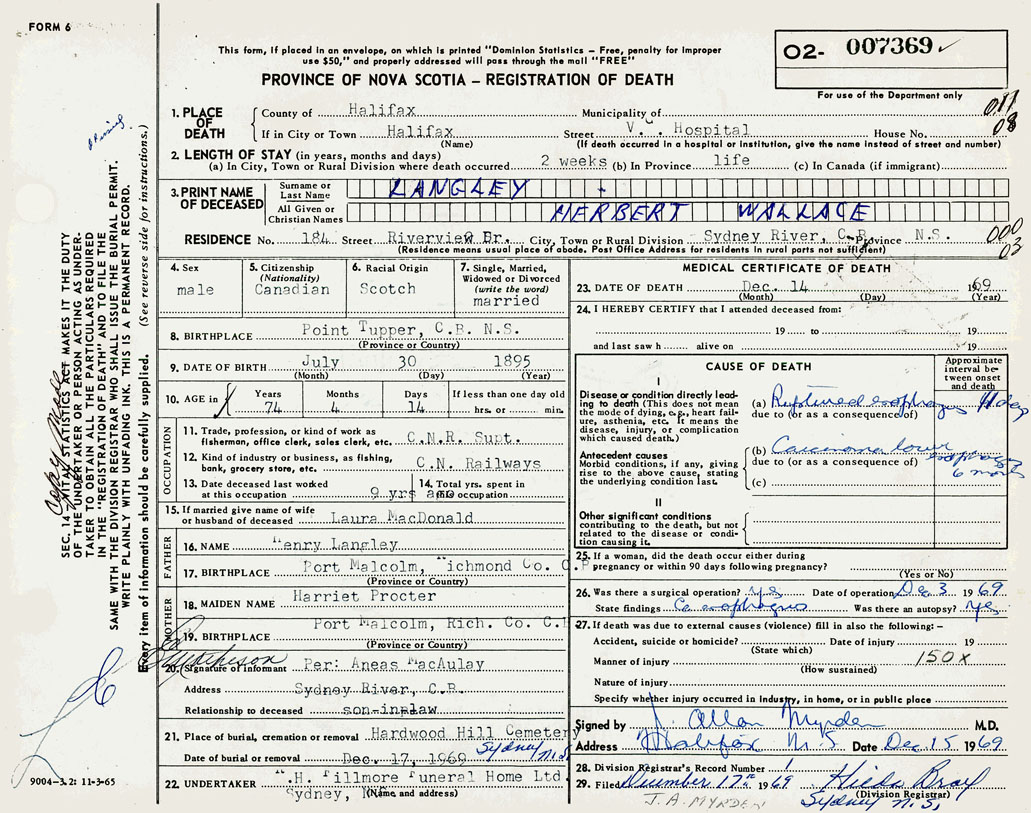 FORM 6
This form, if placed in an envelope, on which is printed "Dominion Statistics – Free, penalty for improper
use $50," and properly addressed will pass through the mail "FREE"
PROVINCE OF NOVA SCOTIA – REGISTRATION OF DEATH
O2- 007369
For use of the Department only
011
08
1. PLACE OF DEATH
County of Halifax Municipality of
If in City or Town Halifax Street V. . Hospital House No.
(Name) (If death occurred in a hospital or institution, give the name instead of street and number)
2. LENGTH OF STAY (in years, months and days)
(a) In City, Town or Rural Division where death occurred 2 weeks (b) In Province life (c) In Canada (if immigrant)
3. PRINT NAME OF DECEASED
Surname or Last Name LANGLEY
All Given or Christian Names HERBERT WALLACE
RESIDENCE No. 184 Street Riverview Dr. City, Town or Rural Division Sydney River, C.B. Province N.S.
(Residence means usual place of abode. Post Office Address for residents in rural parts not sufficient)
000
03
4. Sex
male
5. Citizenship
(Nationality)
Canadian
6. Racial Origin
Scotch
7. Single, Married,
Widowed or Divorced
(write the word)
married
8. BIRTHPLACE Point Tupper, C.B. N.S.
(Province or Country)
9. DATE OF BIRTH July 30 1895
(Month) (Day) (Year)
10. AGE in Years Months Days If less than one day old
74 4 14 hrs. or min.
OCCUPATION
11. Trade, profession, or kind of work as
fisherman, office clerk, sales clerk, etc. C.N.R. Supt.
12. Kind of industry or business, as fishing,
bank, grocery store, etc. C.N. Railways
13. Date deceased last worked
at this occupation 9 yrs ago
14. Total yrs. spent in
this occupation
15. If married give name of wife
or husband of deceased Laura MacDonald
FATHER
16. NAME Henry Langley
17. BIRTHPLACE Port Malcolm, Richmond Co. C.B
(Province or Country)
MOTHER
18. MAIDEN NAME Harriet Procter
19. BIRTHPLACE Port Malcolm, Rich. Co. C.B
(Province or Country)
20. Signature of informant Per: Aneas MacAulay
Address Sydney River, C.B.
Relationship to deceased son-in-law
21. Place of burial, cremation or removal Hardwood Hill Cemetery
Sydney N.S.
Date of burial or removal Dec. 17, 1969
22. UNDERTAKER .H. Fillmore Funeral Home Ltd.
Sydney, N.S.
(Name and address)
MEDICAL CERTIFICATE OF DEATH
23. DATE OF DEATH Dec. 14 1969
(Month) (Day) (Year)
24. I HEREBY CERTIFY that I attended deceased from:
19 to 19
and last saw h alive on 19
CAUSE OF DEATH
Approximate
interval be-
tween onset
and death
I
Disease or condition directly lead-
ing to death (This does not mean
the mode of dying, e.g., heart fail-
ure, asthenia, etc. It means the
disease, injury, or complication
which caused death.)
(a) Ruptured esophagus 11 days
due to (or as a consequence of)
Antecedent causes
Morbid conditions, if any, giving
rise to the above cause, stating
the underlying condition last.
(b) Carcinoma lower esophagus
due to (or as a consequence of) 6 mon
(c)
II
Other significant conditions
contributing to the death, but not
related to the disease or condi-
tion causing it.
25. If a woman, did the death occur either during
pregnancy or within 90 days following pregnancy?
(Yes or No)
26. Was there a surgical operation? yes Date of operation Dec 3 1969
State findings Ca esophagus Was there an autopsy? Yes
27. If death was due to external causes (violence) fill in also the following:–
Accident, suicide or homicide? Date of injury 19
(State which)
Manner of injury 150X
(How sustained)
Nature of injury
Specify whether injury occurred in industry, in home, or in public place
Signed by J. Allan Myrden M.D.
Address Halifax N.S. Date Dec 15 1969
28. Division Registrar's Record Number
29. Filed December 17th 1969 Hilda Bray
(Division Registrar)
J.A. MYRDEN Sydney N.S.
SEC. 14 VITAL STATISTICS ACT MAKES IT THE DUTY
OF THE UNDERTAKER OR PERSON ACTING AS UNDER-
TAKER TO OBTAIN ALL THE PARTICULARS REQUIRED
IN THE "REGISTRATION OF DEATH" AND TO FILE THE
SAME WITH THE DIVISION REGISTRAR WHO SHALL ISSUE THE BURIAL PERMIT.
WRITE PLAINLY WITH UNFADING INK. THIS IS A PERMANENT RECORD.
Every item of information should be carefully supplied. (See reverse side for instructions.)
9004-3.2: 11-3-65